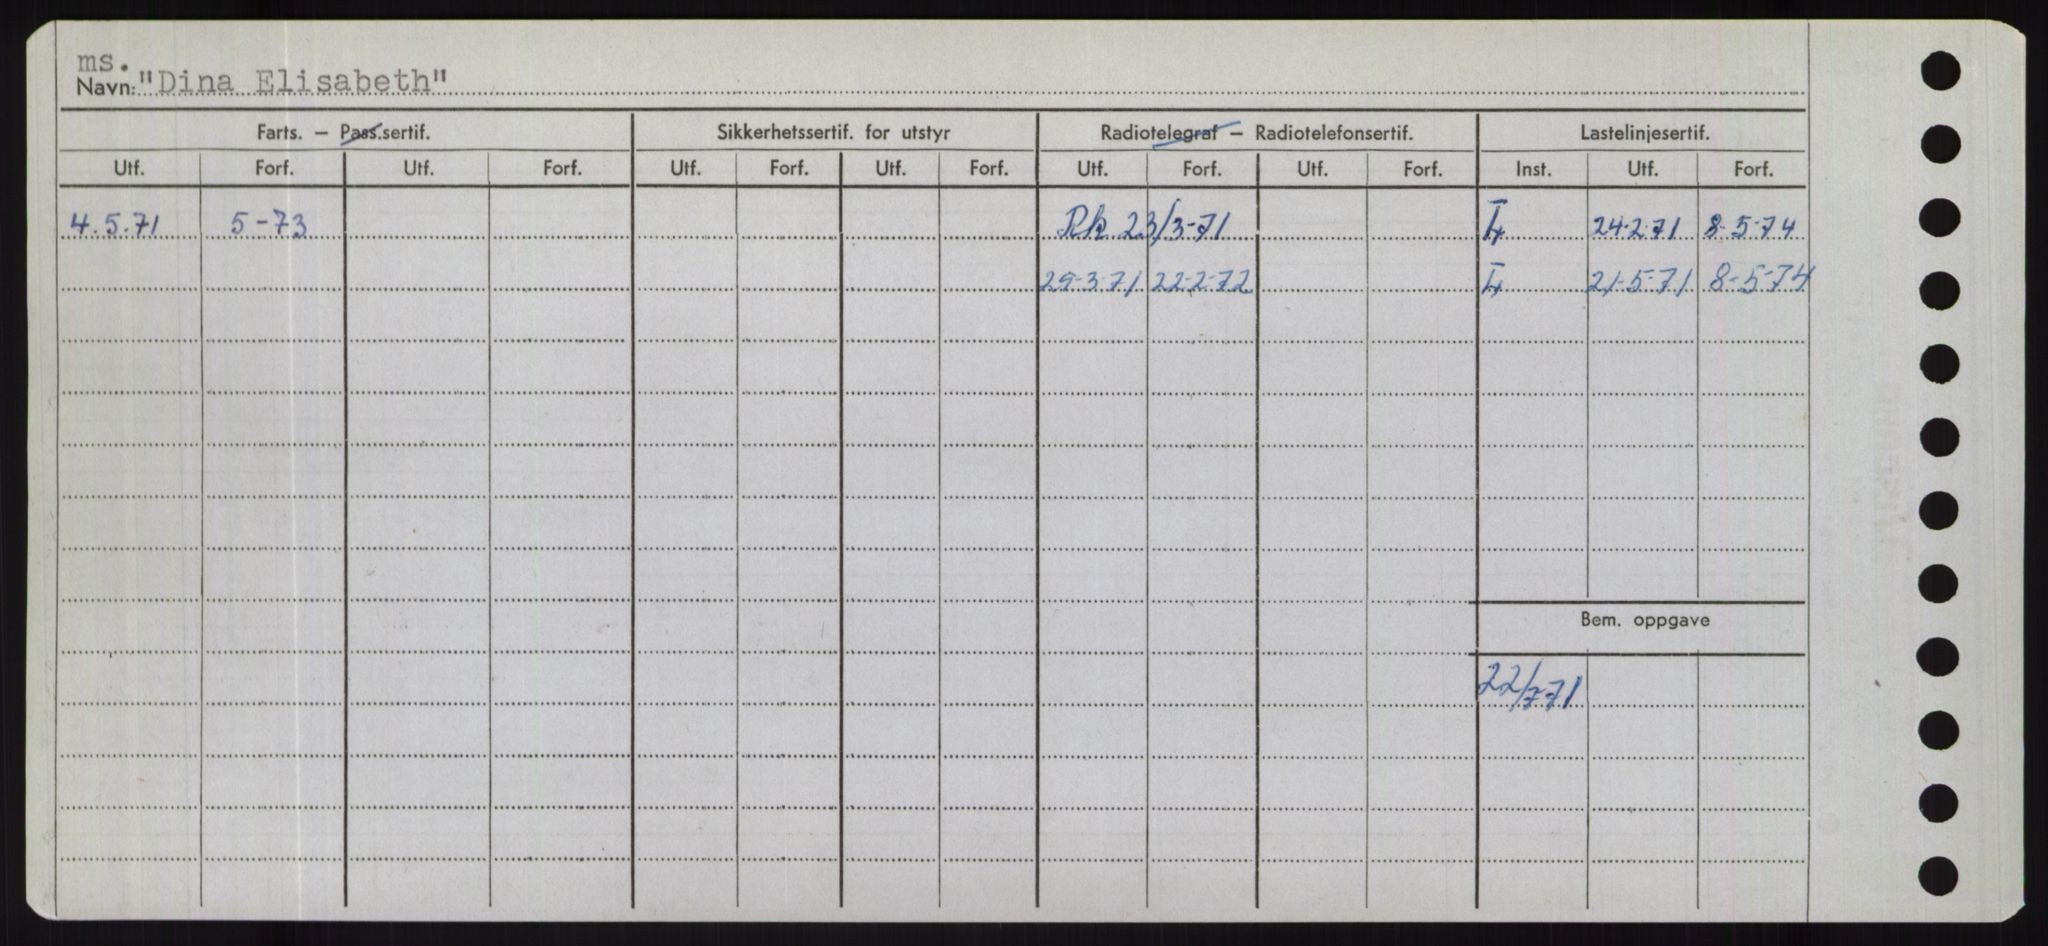 ms.
Navn: "Dina Elisabeth"
Farts. — Pass.sertif. Sikkerhetssertif. for utstyr Radiotelegraf — Radiotelefonsertif. Lastelinjesertif.
Utf. Forf. Utf. Forf. Utf. Forf. Utf. Forf. Utf. Forf. Utf. Forf. Inst. Utf. Forf.
4.5.71 5-73 Rk 23/3-71 24-2-71 8-5-74
22-2-72 21-5-71 8-5-74
Bem. oppgave
22/7-71